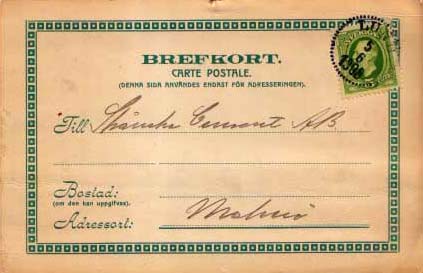 BREFKORT.
CARTE POSTALE.
(DENNA SIDA ANVÄNDES ENDAST FÖR ADRESSERINGEN).
Till Skånska Cement A.B.
Bostad:
(om den kan uppgifvas)
Adressort: Malmö
5
6